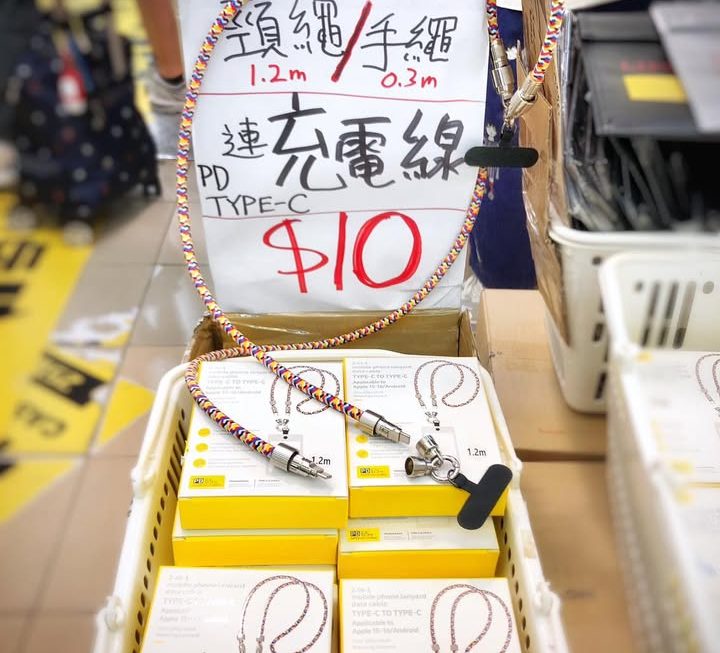 頸繩/手繩
1.2m 0.3m
連充電線
PD
TYPE-C
$10
2-IN-1
mobile phone lanyard
data cable
TYPE-C TO TYPE-C
Applicable to
Apple 15-16/Android
1.2m
PD
2-in-1
mobile phone lanyard
data cable
TYPE-C TO TYPE-C
Applicable to
Apple 15-16/Android
1.2m
PD
2-in-1
mobile phone lanyard
data cable
TYPE-C TO TYPE-C
Apple 15-16/Android
2-in-1
mobile phone lanyard
data cable
TYPE-C TO TYPE-C
Applicable to
Apple 15-16/Android